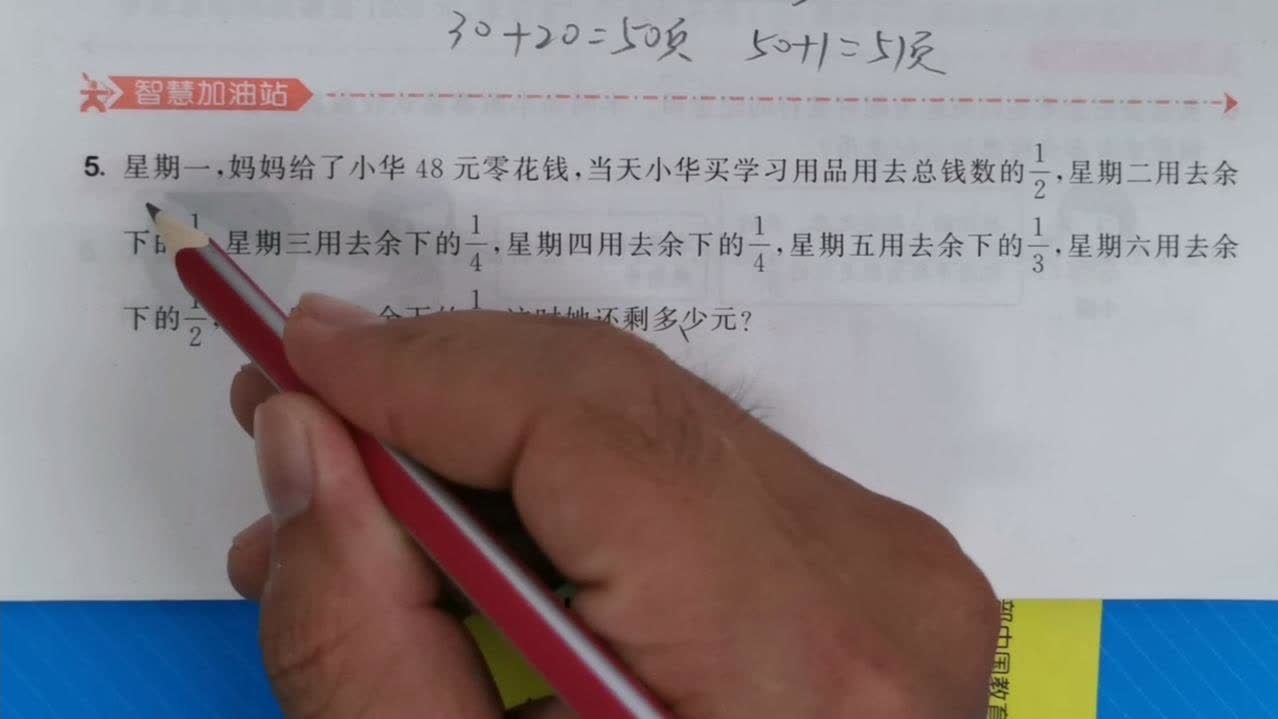 30+20=50页 50+1=51页
智慧加油站
5. 星期一,妈妈给了小华 48 元零花钱,当天小华买学习用品用去总钱数的1/2,星期二用去余
下的 星期三用去余下的1/4,星期四用去余下的1/4,星期五用去余下的1/3,星期六用去余
下的1/2, 余下的 这时她还剩多少元?
部中国教育